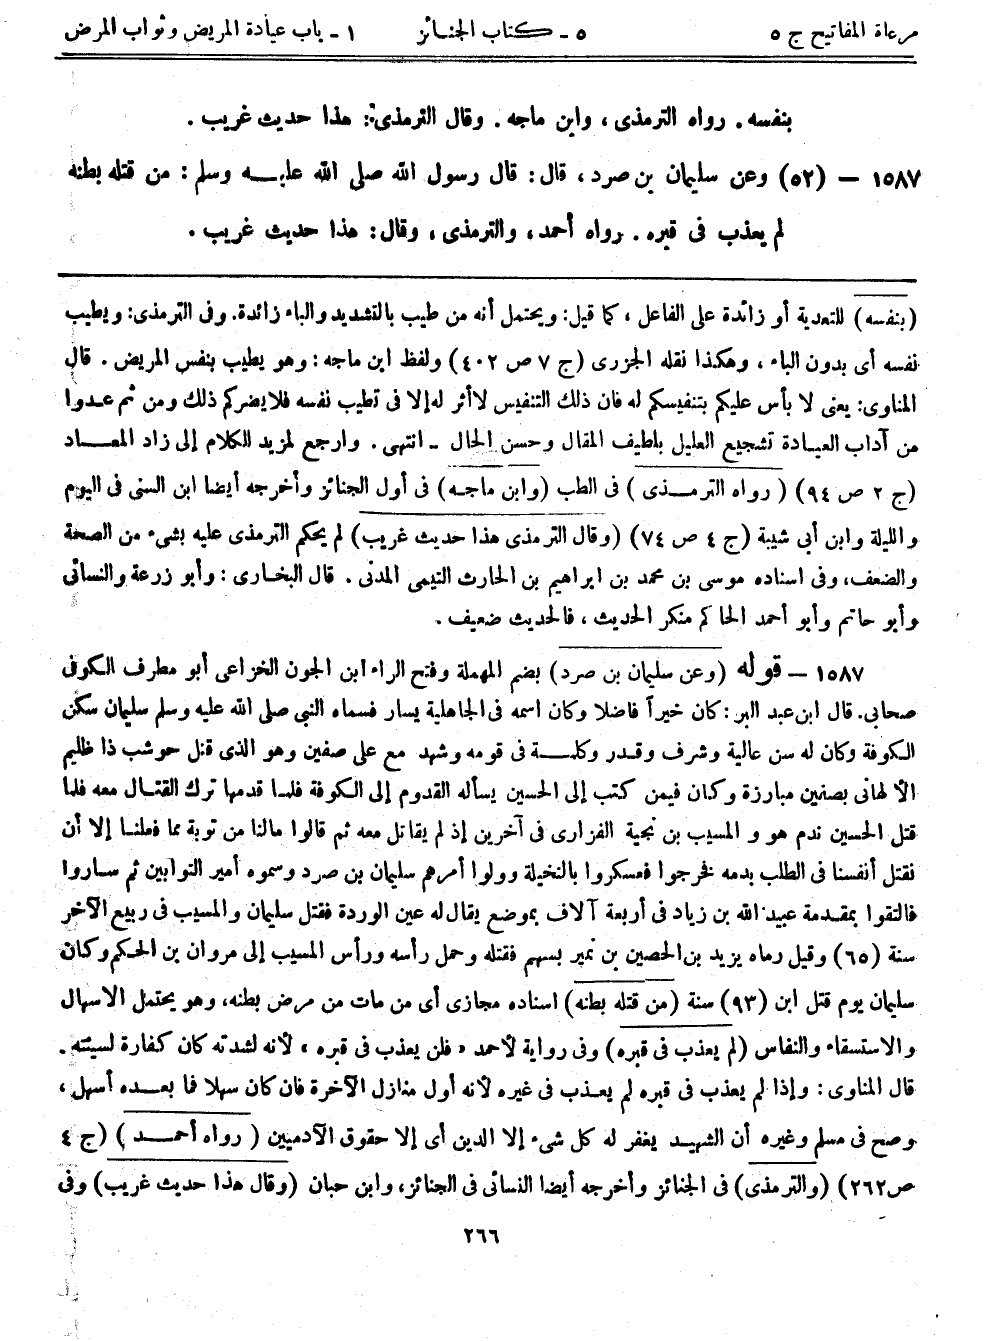 مرعاة المفاتيح ج ٥ ٥ - كتاب الجنائز ١ - باب عيادة المريض وثواب المرض
بنفسه. رواه الترمذى، وابن ماجه. وقال الترمذى: هذا حديث غريب.
١٥٨٧ - (٥٢) وعن سليمان بن صرد، قال: قال رسول الله صلى الله عليه وسلم: من قتله بطنه
لم يعذب فى قبره. رواه أحمد، والترمذى، وقال: هذا حديث غريب.
(بنفسه) للتعدية أو زائدة على الفاعل، كما قيل: ويحتمل أنه من طيب بالتشديد والباء زائدة. وفى الترمذى: ويطيب
نفسه أى بدون الباء، وهكذا نقله الجزرى (ج ٧ ص ٤٠٢) ولفظ ابن ماجه: وهو يطيب بنفس المريض. قال
المناوى: يعنى لا بأس عليكم بتنفيسكم له فان ذلك التنفيس لا أثر له إلا فى تطيب نفسه فلا يضركم ذلك ومن ثم عدوا
من آداب العيادة تشجيع العليل بلطيف المقال وحسن الحال - انتهى. وارجع لمزيد الكلام إلى زاد المعاد
(ج ٢ ص ٩٤) (رواه الترمذى) فى الطب (وابن ماجه) فى أول الجنائز وأخرجه أيضا ابن السنى فى اليوم
والليلة وابن أبى شيبة (ج ٤ ص ٧٤) (وقال الترمذى هذا حديث غريب) لم يحكم الترمذى عليه بشىء من الصحة
والضعف، وفى اسناده موسى بن محمد بن ابراهيم بن الحارث التيمى المدنى. قال البخارى: وأبو زرعة والنسائى
وأبو حاتم وأبو أحمد الحاكم منكر الحديث، فالحديث ضعيف.
١٥٨٧ - قوله (وعن سليمان بن صرد) بضم المهملة وفتح الراء ابن الجون الخزاعى أبو مطرف الكوفى
صحابى. قال ابن عبد البر: كان خيراً فاضلا وكان اسمه فى الجاهلية يسار فسماه النبى صلى الله عليه وسلم سليمان سكن
الكوفة وكان له سن عالية وشرف وقدر وكلمة فى قومه وشهد مع على صفين وهو الذى قتل حوشب ذا ظليم
الألهانى بصفين مبارزة وكان فيمن كتب إلى الحسين يسأله القدوم إلى الكوفة فلما قدمها ترك القتال معه فلما
قتل الحسين ندم هو و المسيب بن نجية الفزارى فى آخرين إذ لم يقاتل معه ثم قالوا مالنا من توبة مما فعلنا إلا أن
نقتل أنفسنا فى الطلب بدمه فخرجوا فعسكروا بالنخيلة وولوا أمرهم سليمان بن صرد وسموه أمير التوابين ثم ساروا
فالتقوا بمقدمة عبيد الله بن زياد فى أربعة آلاف بموضع يقال له عين الوردة فقتل سليمان والمسيب فى ربيع الآخر
سنة (٦٥) وقيل رماه يزيد بن الحصين بن نمير بسهم فقتله وحمل رأسه ورأس المسيب إلى مروان بن الحكم وكان
سليمان يوم قتل ابن (٩٣) سنة (من قتله بطنه) اسناده مجازى أى من مات من مرض بطنه، وهو يحتمل الاسهال
والاستسقاء والنفاس (لم يعذب فى قبره) وفى رواية لأحمد «فلن يعذب فى قبره» لأنه لشدته كان كفارة لسيئته.
قال المناوى: وإذا لم يعذب فى قبره لم يعذب فى غيره لأنه أول منازل الآخرة فان كان سهلا فما بعده أسهل،
وصح فى مسلم وغيره أن الشهيد يغفر له كل شىء إلا الدين أى إلا حقوق الآدميين (رواه أحمد) (ج ٤
ص ٢٦٢) (والترمذى) فى الجنائز وأخرجه أيضا النسائى فى الجنائز، وابن حبان (وقال هذا حديث غريب) وفى
٢٦٦